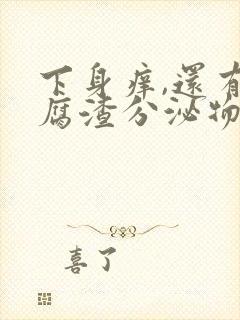 下身痒,還有
腐渣分泌物
喜了